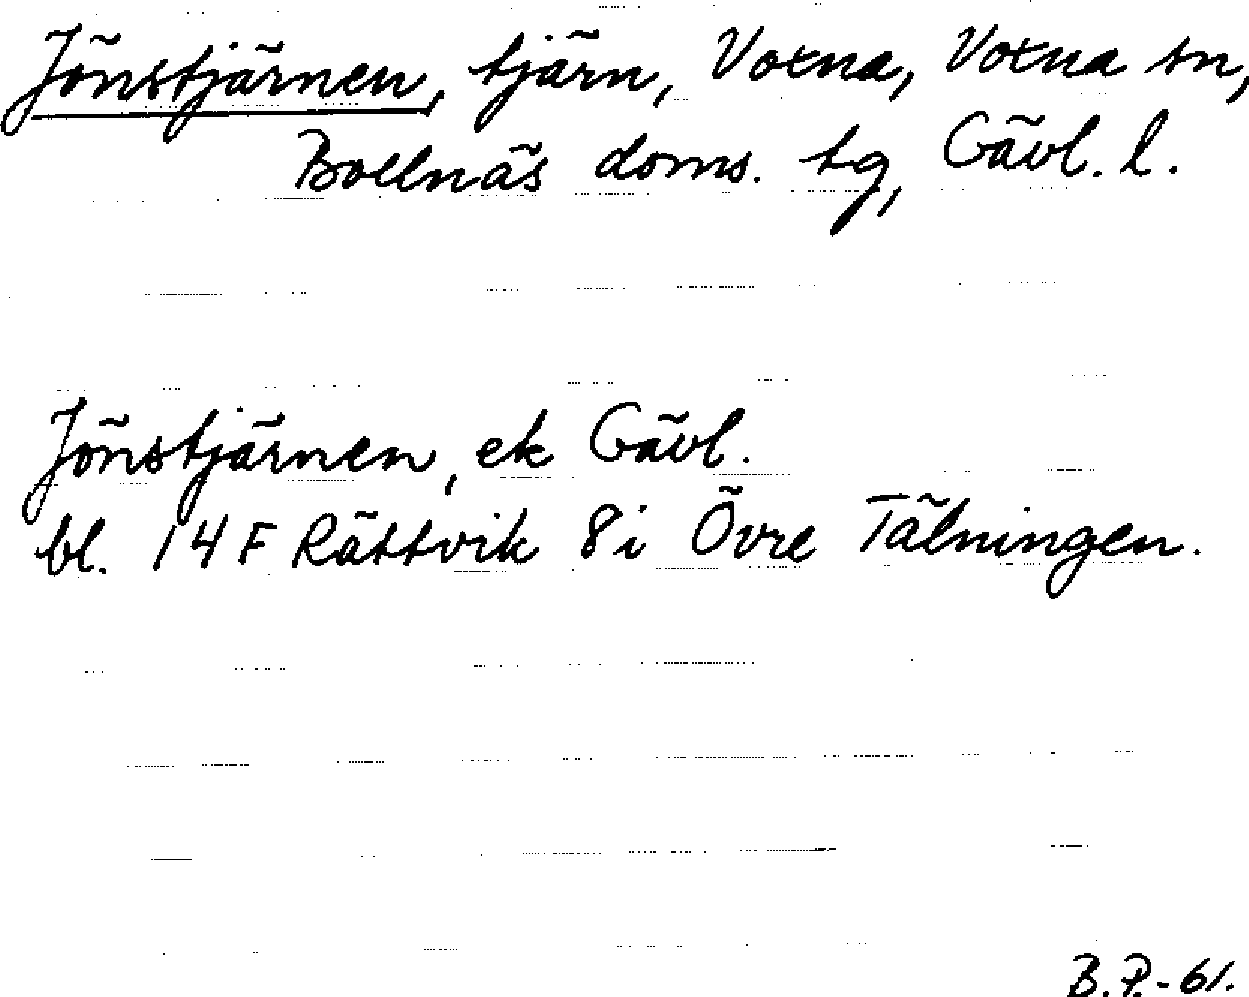 Jönstjärnen, tjärn, Voxna, Voxna sn,
Bollnäs doms. tg, Gävl. l.
Jönstjärnen, ek Gävl.
bl. 14F Rättvik 8i Övre Tälningen.
B.P.-61.